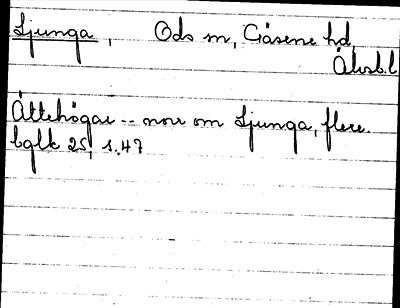 Ljunga, Ods sn, Gäsene hd,
Älvsb.l
Ättehögar -- norr om Ljunga, flere.
bglk 25, s.47